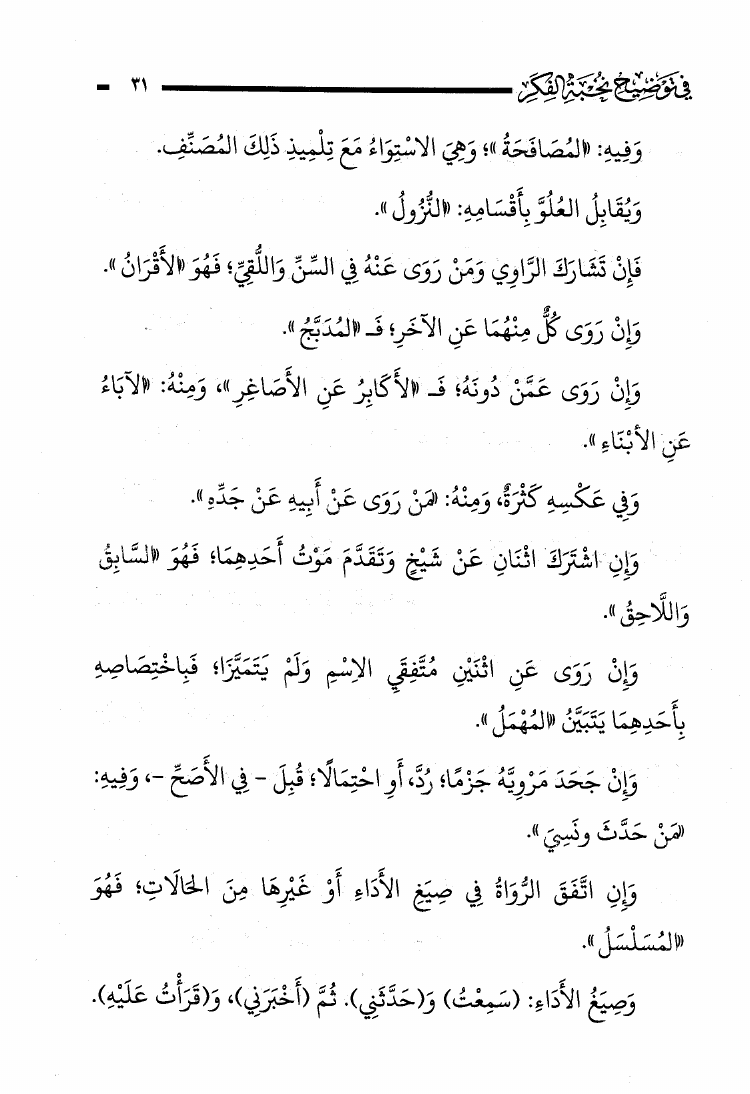 في توضيح نخبة الفكر ٣١
وَفِيهِ: «المُصَافَحَةُ»؛ وَهِيَ الاسْتِوَاءُ مَعَ تِلْمِيذِ ذَلِكَ المُصَنِّفِ.
وَيُقَابِلُ العُلُوَّ بِأَقْسَامِهِ: «النُّزُولُ».
فَإِنْ تَشَارَكَ الرَّاوِي وَمَنْ رَوَى عَنْهُ فِي السِّنِّ وَاللُّقِيِّ؛ فَهُوَ «الأَقْرَانُ».
وَإِنْ رَوَى كُلٌّ مِنْهُمَا عَنِ الآخَرِ؛ فَـ «المُدَبَّجُ».
وَإِنْ رَوَى عَمَّنْ دُونَهُ؛ فَـ «الأَكَابِرُ عَنِ الأَصَاغِرِ»، وَمِنْهُ: «الآبَاءُ
عَنِ الأَبْنَاءِ».
وَفِي عَكْسِهِ كَثْرَةٌ، وَمِنْهُ: «مَنْ رَوَى عَنْ أَبِيهِ عَنْ جَدِّهِ».
وَإِنِ اشْتَرَكَ اثْنَانِ عَنْ شَيْخٍ وَتَقَدَّمَ مَوْتُ أَحَدِهِمَا؛ فَهُوَ «السَّابِقُ
وَاللَّاحِقُ».
وَإِنْ رَوَى عَنِ اثْنَيْنِ مُتَّفِقَيِ الاِسْمِ وَلَمْ يَتَمَيَّزَا؛ فَبِاخْتِصَاصِهِ
بِأَحَدِهِمَا يَتَبَيَّنُ «المُهْمَلُ».
وَإِنْ جَحَدَ مَرْوِيَّهُ جَزْمًا؛ رُدَّ، أَوِ احْتِمَالًا؛ قُبِلَ - فِي الأَصَحِّ -، وَفِيهِ:
«مَنْ حَدَّثَ ونَسِيَ».
وَإِنِ اتَّفَقَ الرُّوَاةُ فِي صِيَغِ الأَدَاءِ أَوْ غَيْرِهَا مِنَ الحَالَاتِ؛ فَهُوَ
«المُسَلْسَلُ».
وَصِيَغُ الأَدَاءِ: (سَمِعْتُ) وَ(حَدَّثَنِي). ثُمَّ (أَخْبَرَنِي)، وَ(قَرَأْتُ عَلَيْهِ).